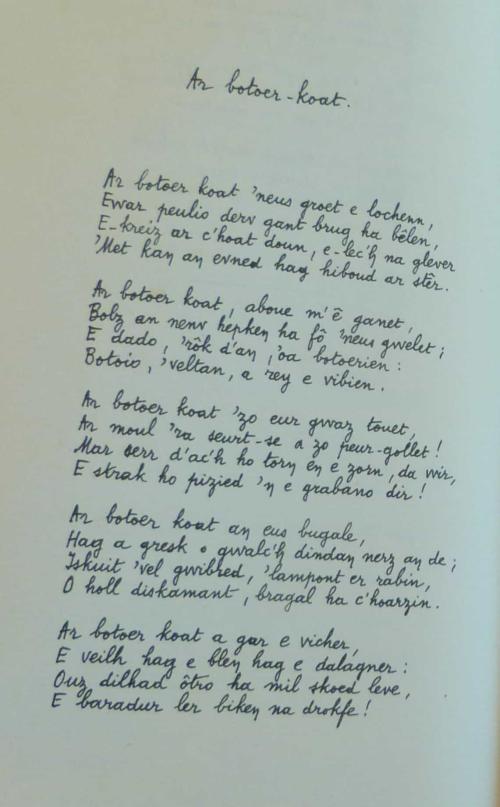 Ar botoer-koat.
Ar botoer koat 'neus groet e lochenn,
Ewar peulio derv gant brug ha bêlen,
E-kreiz ar c'hoat doun, e-lec'h na glever
'Met kan an evned hag hiboud ar stêr.
Ar botoer koat, aboue m'ê ganet,
Bolz an nenv hepken ha fô 'neus gwelet;
E dado, 'rôk d'an, 'oa botoerien:
Botoio, 'veltan, a rey e vibien.
Ar botoer koat 'zo eur gwaz touet,
Ar moul 'ra seurt-se a zo peur-gollet!
Mar serr d'ac'h ho torn en e zorn, da wir,
E strak ho pizied 'n e grabano dir!
Ar botoer koat an eus bugale,
Hag a gresk o gwalc'h dindan nerz an de;
Iskuit 'vel gwibred, 'lampont er rabin,
O holl diskamant, bragal ha c'hoarzin.
Ar botoer koat a gar e vicher,
E veilh hag e blen hag e dalagner:
Ouz dilhad ôtro ha mil skoed leve,
E baradur ler biken na drokfe!